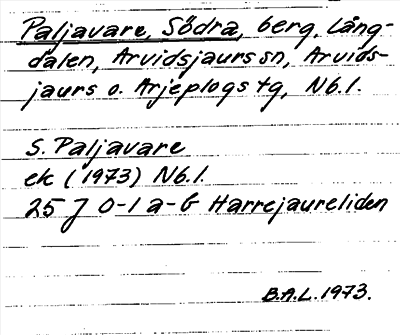 Paljavare, Södra, berg, Lång-
dalen, Arvidsjaurs sn, Arvids-
jaurs o. Arjeplogs tg, Nb.l.
S. Paljavare
ek (1973) Nb.l.
25 J 0-1 a-b Harrejaureliden
B.A.L. 1973.